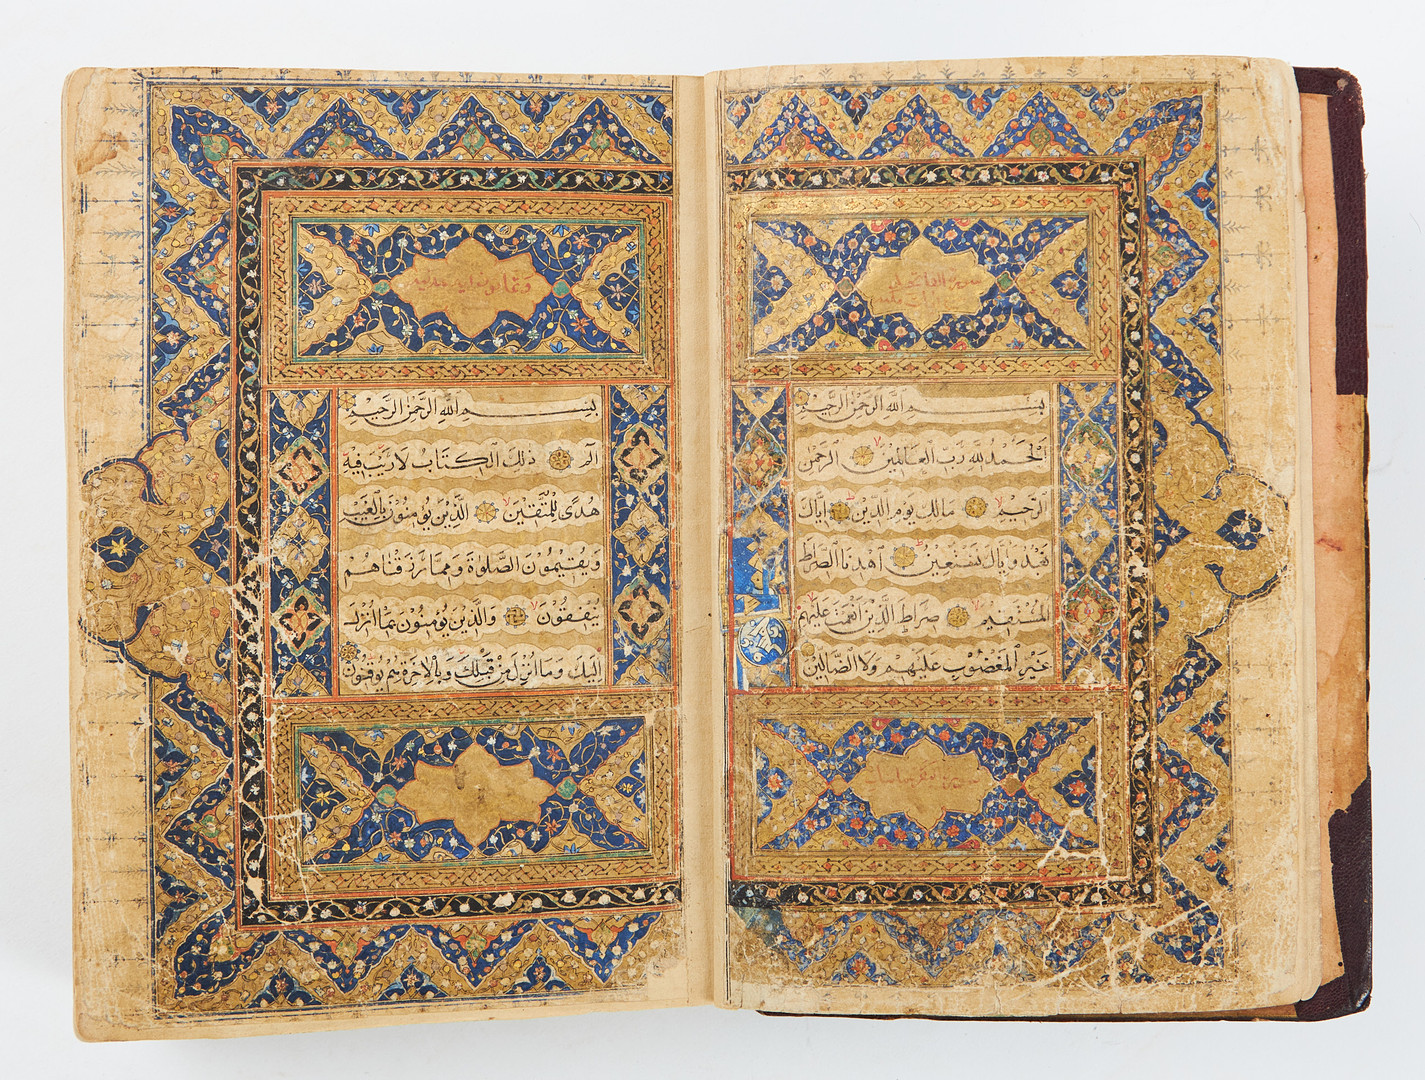 سورة الفاتحة
بسم الله الرحمن الرحيم
اَلْحَمْدُ لله رَبِّ العَالمين الرحمن
الرحيم مالك يوم الدين اياك
نعبد وياك نستعين اهدنا الصراط
المستقيم صراط الذين انعمت عليهم
غير المغضوب عليهم ولا الضالين
سورة البقرة مايتان
وثمانون مدنية
بسم الله الرحمن الرحيم
الم ذلك الكتاب لا ريب فيه
هدى للمتقين الذين يومنون بالغيب
ويقيمون الصلوة ومما رزقناهم
ينفقون والذين يومنون بما انزل
اليك وما انزل من قبلك وبالاخرة هم يوقنون